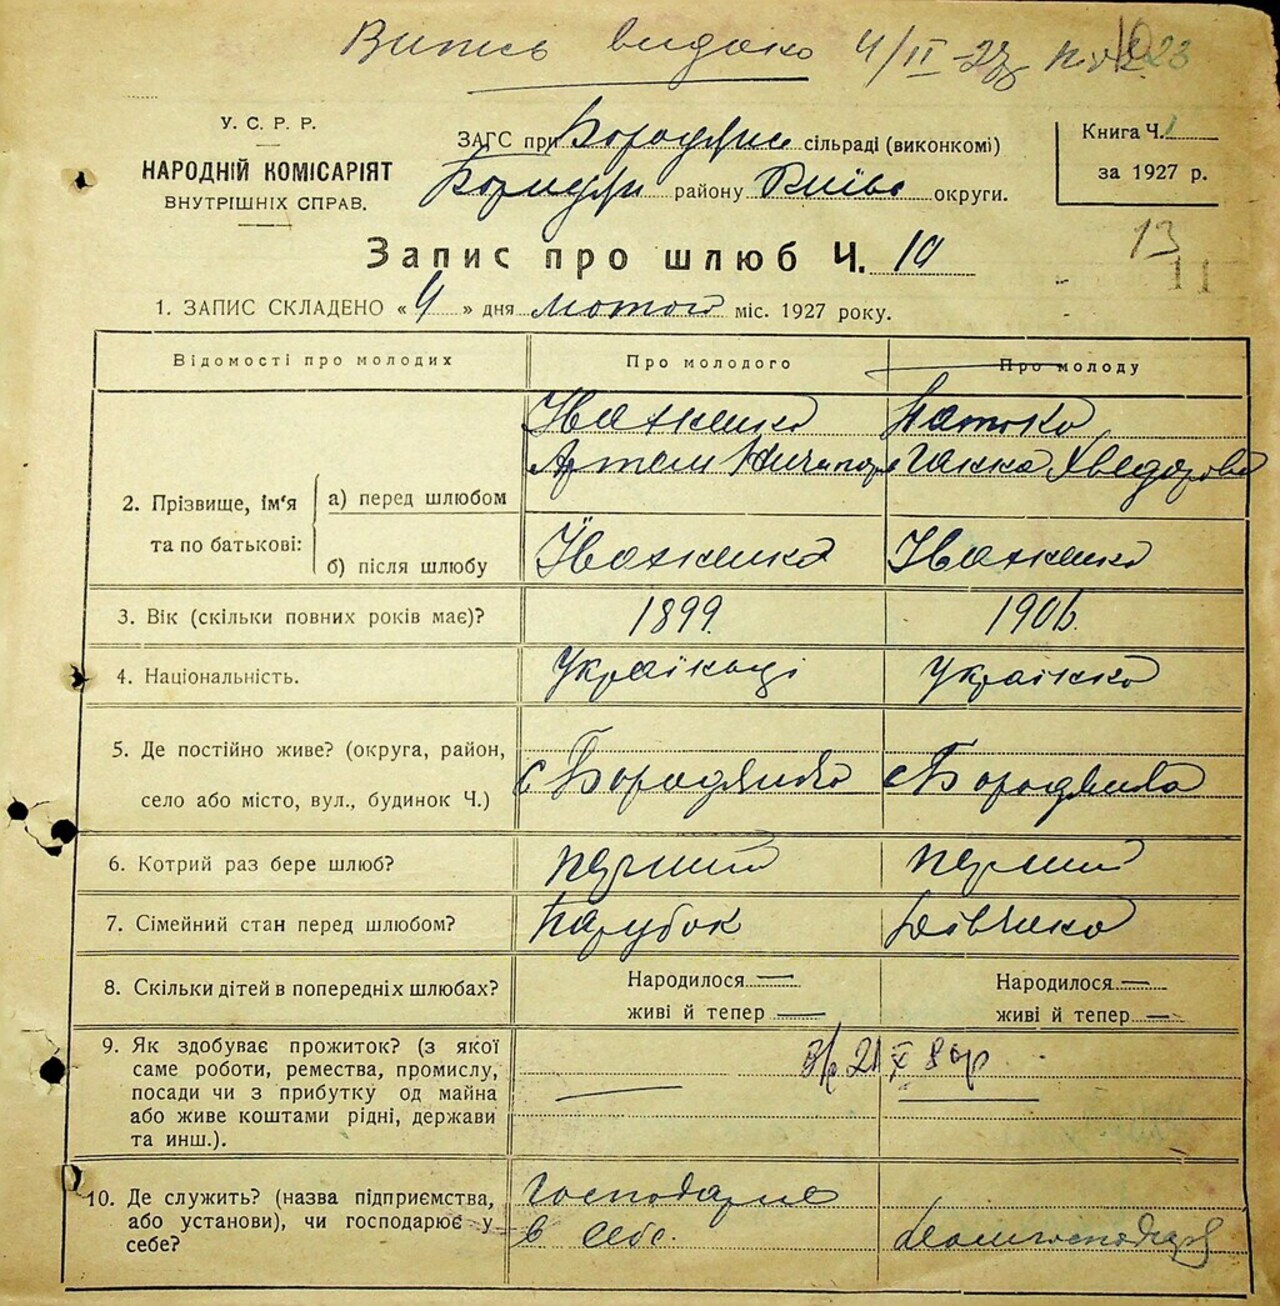 Витяг видано 4/II-27
У. С. Р. Р.
НАРОДНІЙ КОМІСАРІЯТ
ВНУТРІШНІХ СПРАВ.
ЗАГС при Бородян сільраді (виконкомі)
Бородян району Київс округи.
Книга Ч. 1
за 1927 р.
13
11
Запис про шлюб Ч. 10
1. ЗАПИС СКЛАДЕНО « 4 » дня лютого міс. 1927 року.
Відомості про молодих Про молодого Про молоду
2. Прізвище, ім'я та по батькові:
а) перед шлюбом
Іваженко Артем Ничипор
Патоко Ганна Хведорова
б) після шлюбу
Іваженко Іваженко
3. Вік (скільки повних років має)? 1899. 1906.
4. Національність. Українці Українка
5. Де постійно живе? (округа, район,
село або місто, вул., будинок Ч.)
с Бородянка с Бородянка
6. Котрий раз бере шлюб? перший перший
7. Сімейний стан перед шлюбом? Парубок Дівчина
8. Скільки дітей в попередніх шлюбах? Народилося — Народилося —
живі й тепер — живі й тепер —
9. Як здобуває прожиток? (з якої
саме роботи, ремества, промислу,
посади чи з прибутку од майна
або живе коштами рідні, держави
та инш.).
10. Де служить? (назва підприємства,
або установи), чи господарює у
себе?
Господарює
в себе.